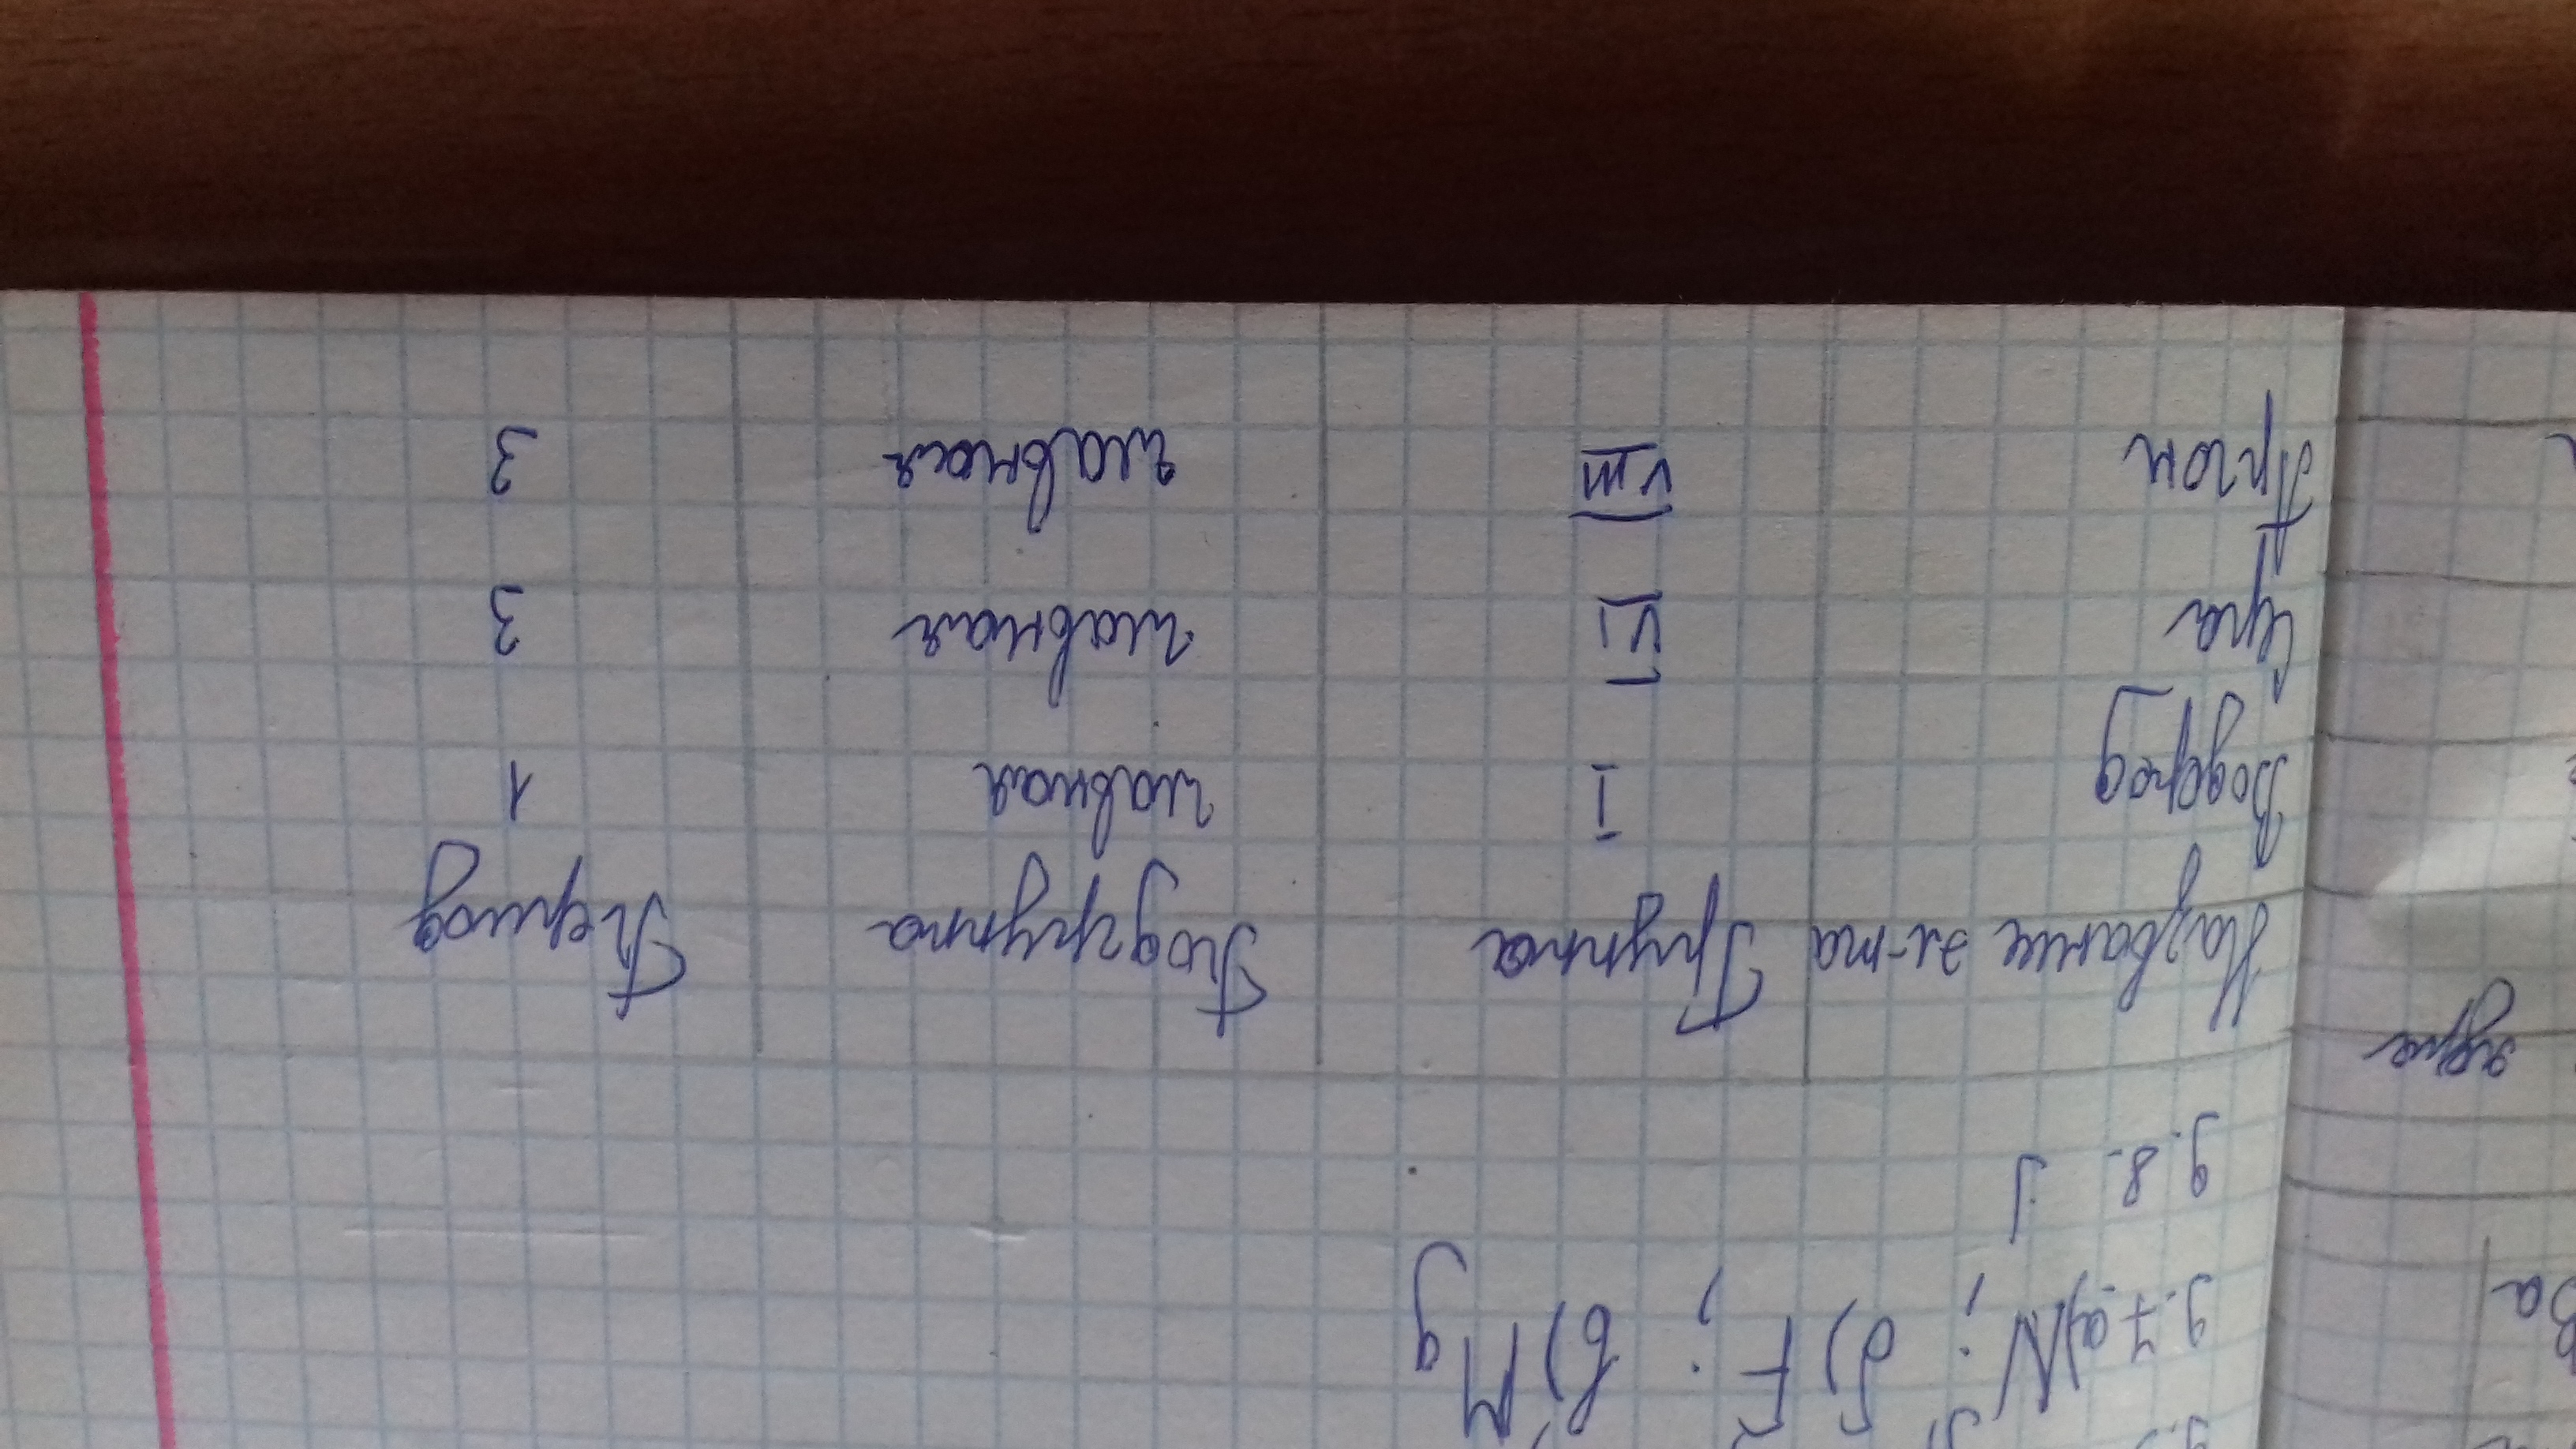 9.7 а) N; б) F; в) Mg
9.8. J
Название эл-та Группа Подгруппа Период
Водород I главная 1
Сера VI главная 3
Аргон VIII главная 3
Ba
ядре